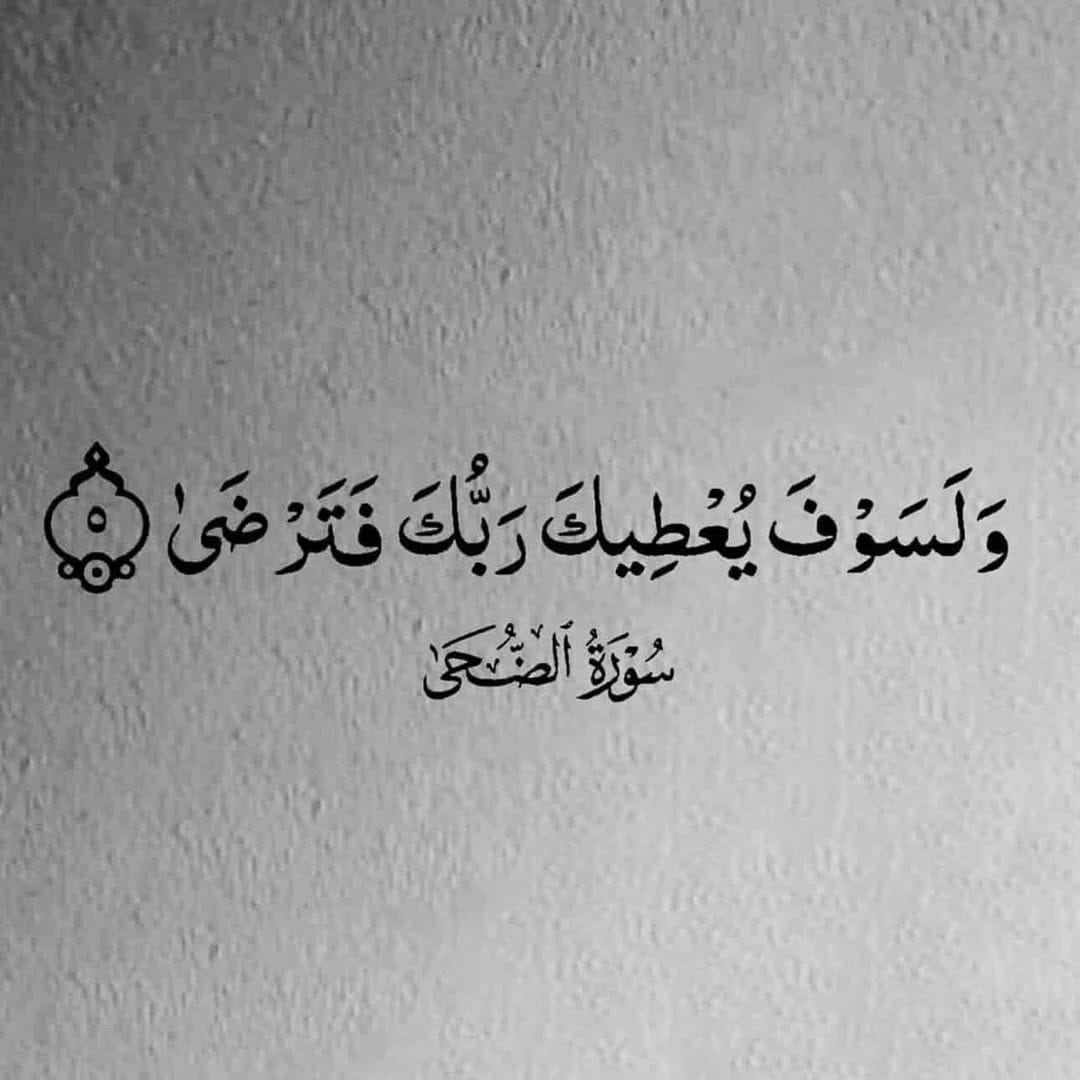 وَلَسَوْفَ يُعْطِيكَ رَبُّكَ فَتَرْضَىٰ ٥
سُورَةُ ٱلضُّحَىٰ